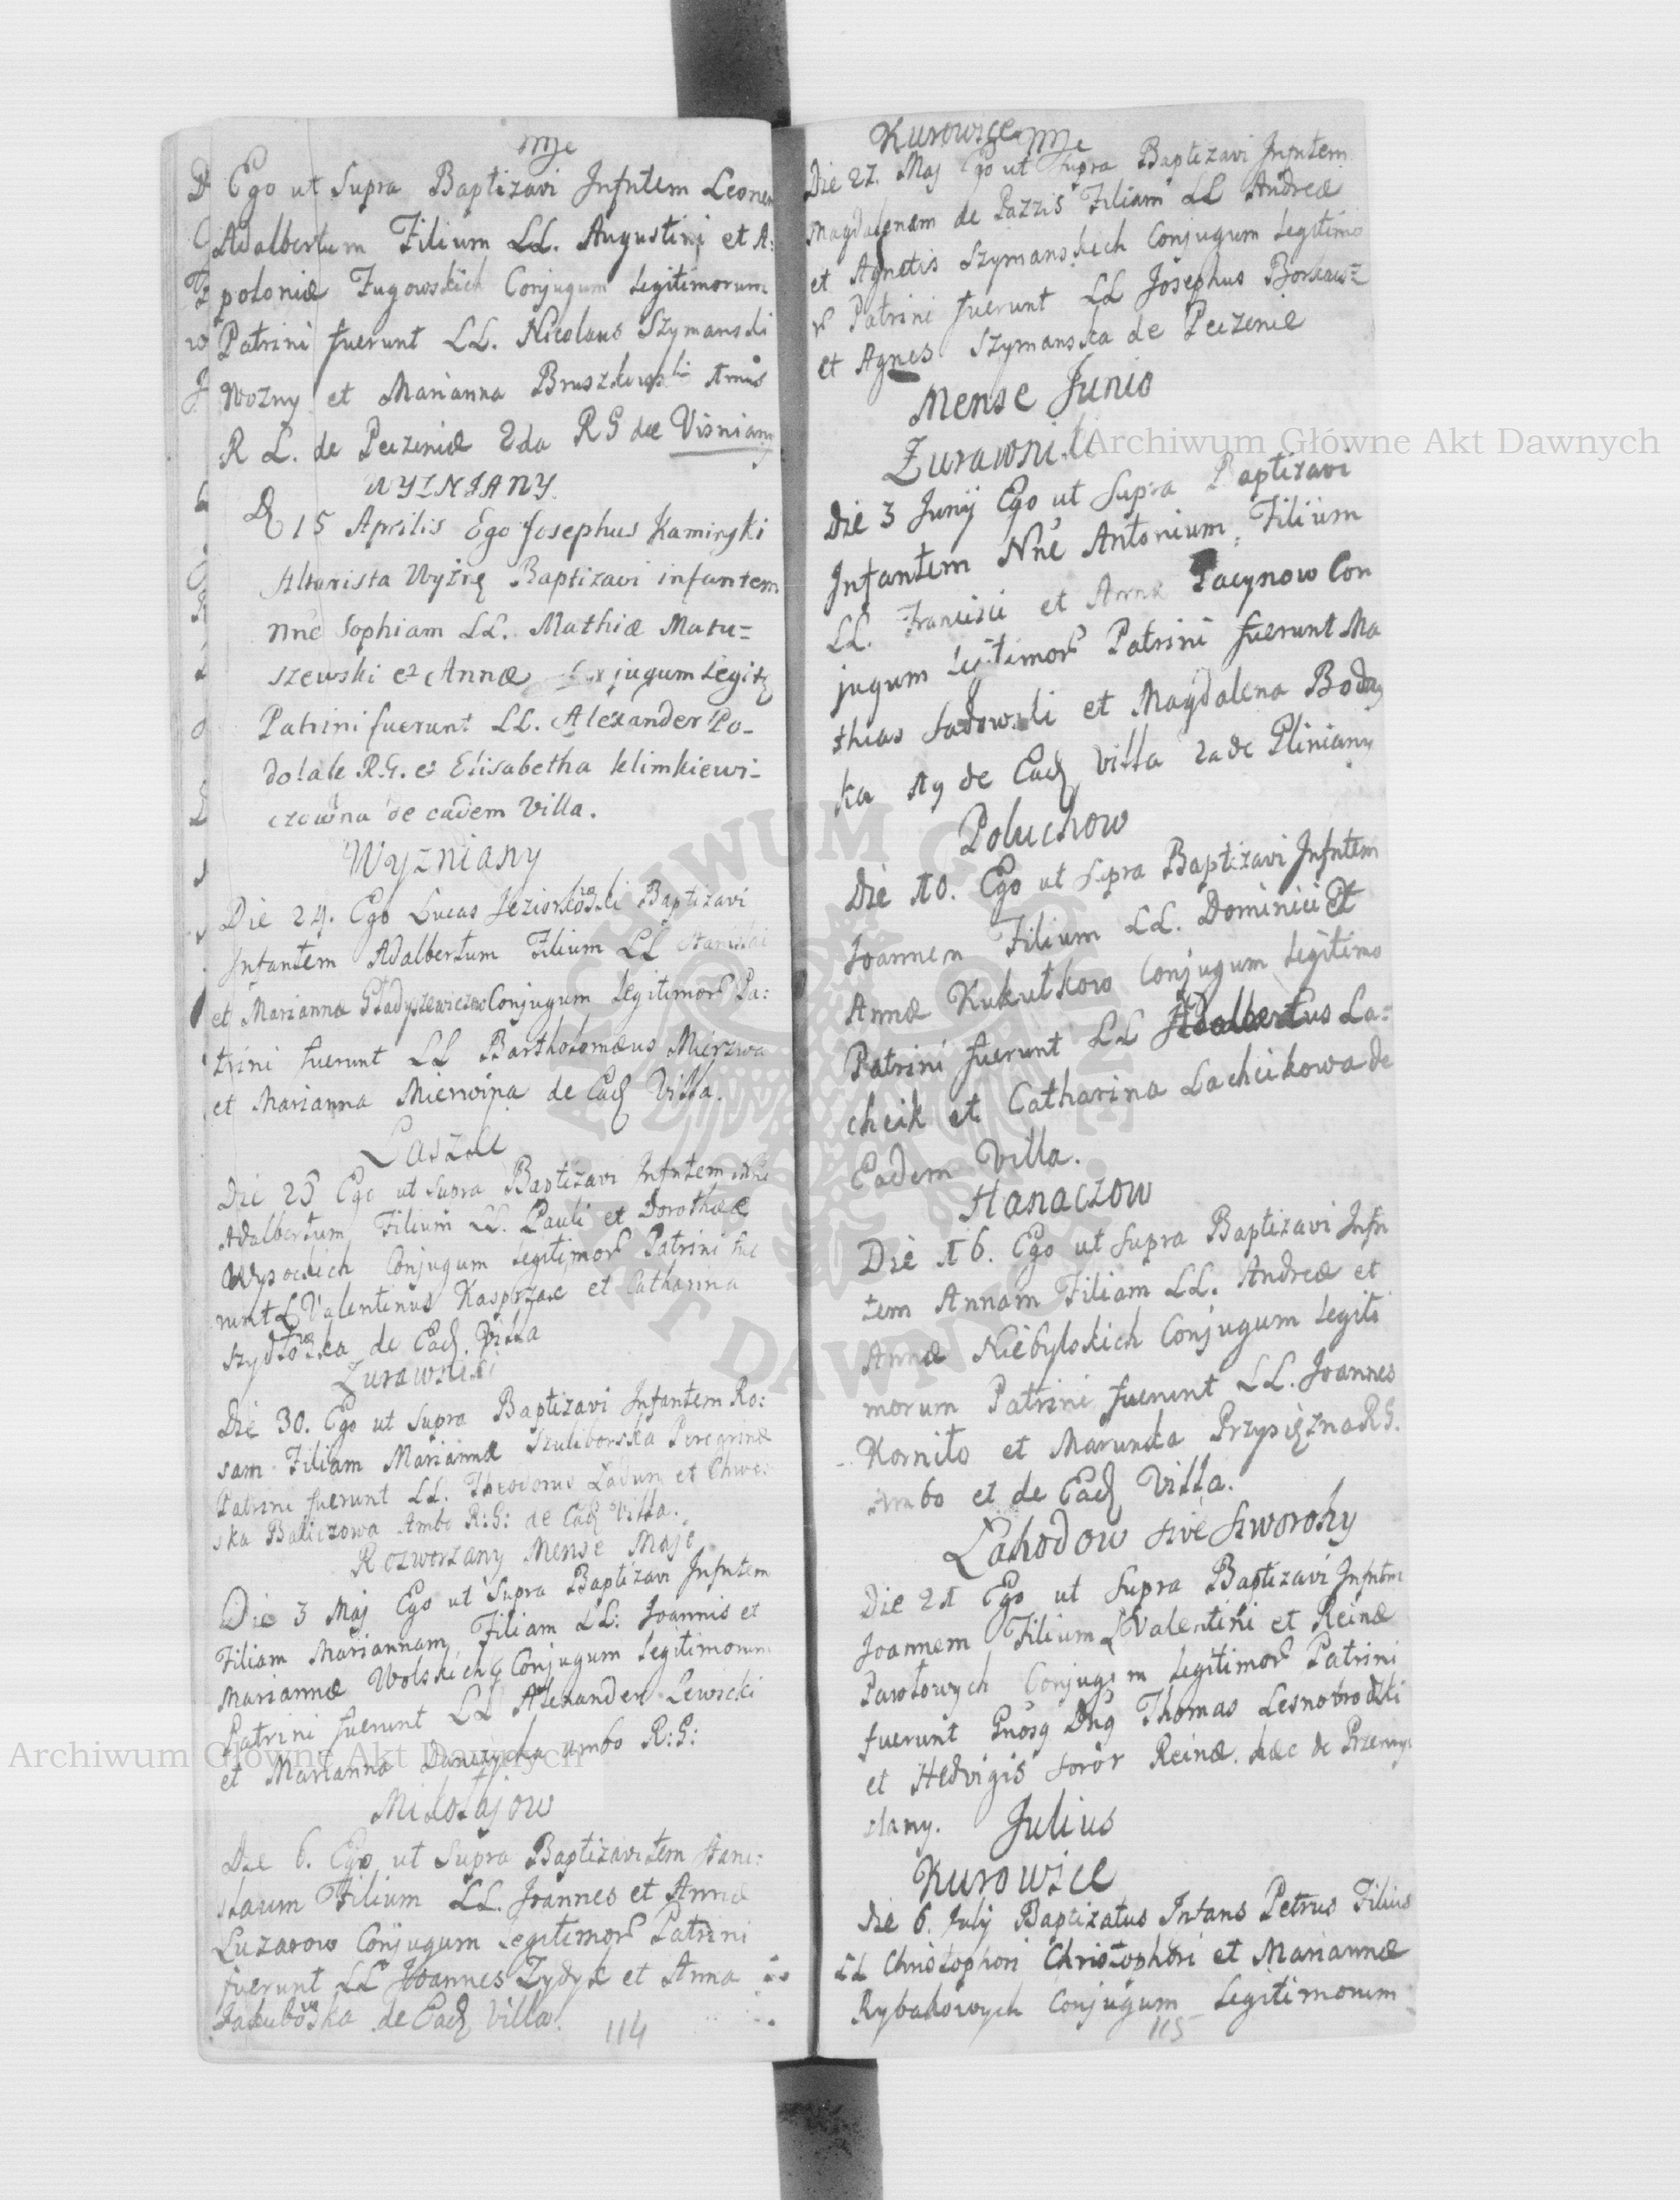 nne
Ego ut Supra Baptizavi Infntem Leonem
Adalbertum Filium LL. Augustini et A:
poloniæ Fugowskich Conjugum Legitimorum
Patrini fuerunt LL. Nicolaus Szymanski
Wozny et Marianna
R L. de Peczeniæ 2da R G de Visniany
WYZNIANY.
D 15 Aprilis Ego Josephus Kaminski
Altarista Baptizavi infantem
nne Sophiam LL. Mathiæ Matu=
szewski et Annæ jugum Legit
Patrini fuerunt LL. Alexander Po-
dolak R.G. et Elisabetha Klimkiewi-
czowna de eadem Villa.
Wyzniany
Die 24. Ego Lucas Jeziorkowski Baptizavi
Infantem Adalbertum Filium LL Stanislai
et Mariannæ Conjugum Legitimor Pa:
trini fuerunt LL Bartholomæus Mierzwa
et Marianna de Ead Villa.
Laszki
Die 25 Ego ut Supra Baptizavi Infntem nne
Adalbertum Filium LL. Pauli et Dorotheæ
Wysockich Conjugum Legitimor Patrini fue
runt LL Valentinus Kasprzak et Catharina
Szydłowska de Ead. Villa
Zurawniki
Die 30. Ego ut Supra Baptizavi Infantem Ro:
sam Filiam Mariannæ Peregrinæ
Patrini fuerunt LL. Theodorus et
ska Baliczowa Ambo R:G: de Ead Villa.
Rozworzany Mense Majo
Die 3 Maj Ego ut Supra Baptizavi Infntem
Filiam Mariannam Filiam LL: Joannis et
Mariannæ Wolskich Conjugum Legitimorum
Patrini fuerunt LL Alexander Lewicki
et Marianna ambo R:G:
Mikołajow
Die 6. Ego ut Supra Baptizavi tem Stani:
slaum Filium LL. Joannes et Annæ
Luzarow Conjugum Legitimor Patrini
fuerunt LL Joannes Zydyk et Anna
Jakubowska de Ead Villa.
114
Kurowice nne
Die 27. Maj Ego ut Supra Baptizavi Infntem
Magdalenam de Pazzis Filiam LL Andreæ
et Agnetis Szymanskich Conjugum Legitimo
r Patrini fuerunt LL Josephus
et Agnes Szymanska de Peczenie
Mense Junio
Zurawniki
Die 3 Junij Ego ut Supra Baptizavi
Infantem Nne Antonium, Filium
LL. Francisci et Annæ Pacynow Con
jugum Legitimor Patrini fuerunt Ma
thias Sadowski et Magdalena
ka de Ead Villa 2a de Gliniany
Poluchow
Die 10. Ego ut Supra Baptizavi Infntem
Joannem Filium LL. Dominici Et
Annæ Kukułkow Conjugum Legitimo
Patrini fuerunt LL Adalbertus La=
cheik et Catharina Lachcikowa de
Eadem Villa.
Hanaczow
Die 16. Ego ut Supra Baptizavi Infn
tem Annam Filiam LL. Andreæ et
Annæ Niebylskich Conjugum Legiti
morum Patrini fuerunt LL. Joannes
Korniło et Maruska Przysiężna R G.
Ambo et de Ead Villa.
Lahodow sive Sworohy
Die 21 Ego ut Supra Baptizavi Infntm
Joannem Filium LL Valentini et Reinæ
Pawłowych Conjugum Legitimor Patrini
fuerunt Gnosq Dnq Thomas Lesnobrodzki
et Hedvigis soror Reinæ. hæc de Przemy
slany.
Julius
Kurowice
Die 6. July Baptizatus Infans Petrus Filius
LL Christophori Christophori et Mariannæ
Rybakowych Conjugum Legitimorum
115
Archiwum Główne Akt Dawnych
Archiwum Główne Akt Dawnych
ARCHIWUM GŁÓWNE AKT DAWNYCH